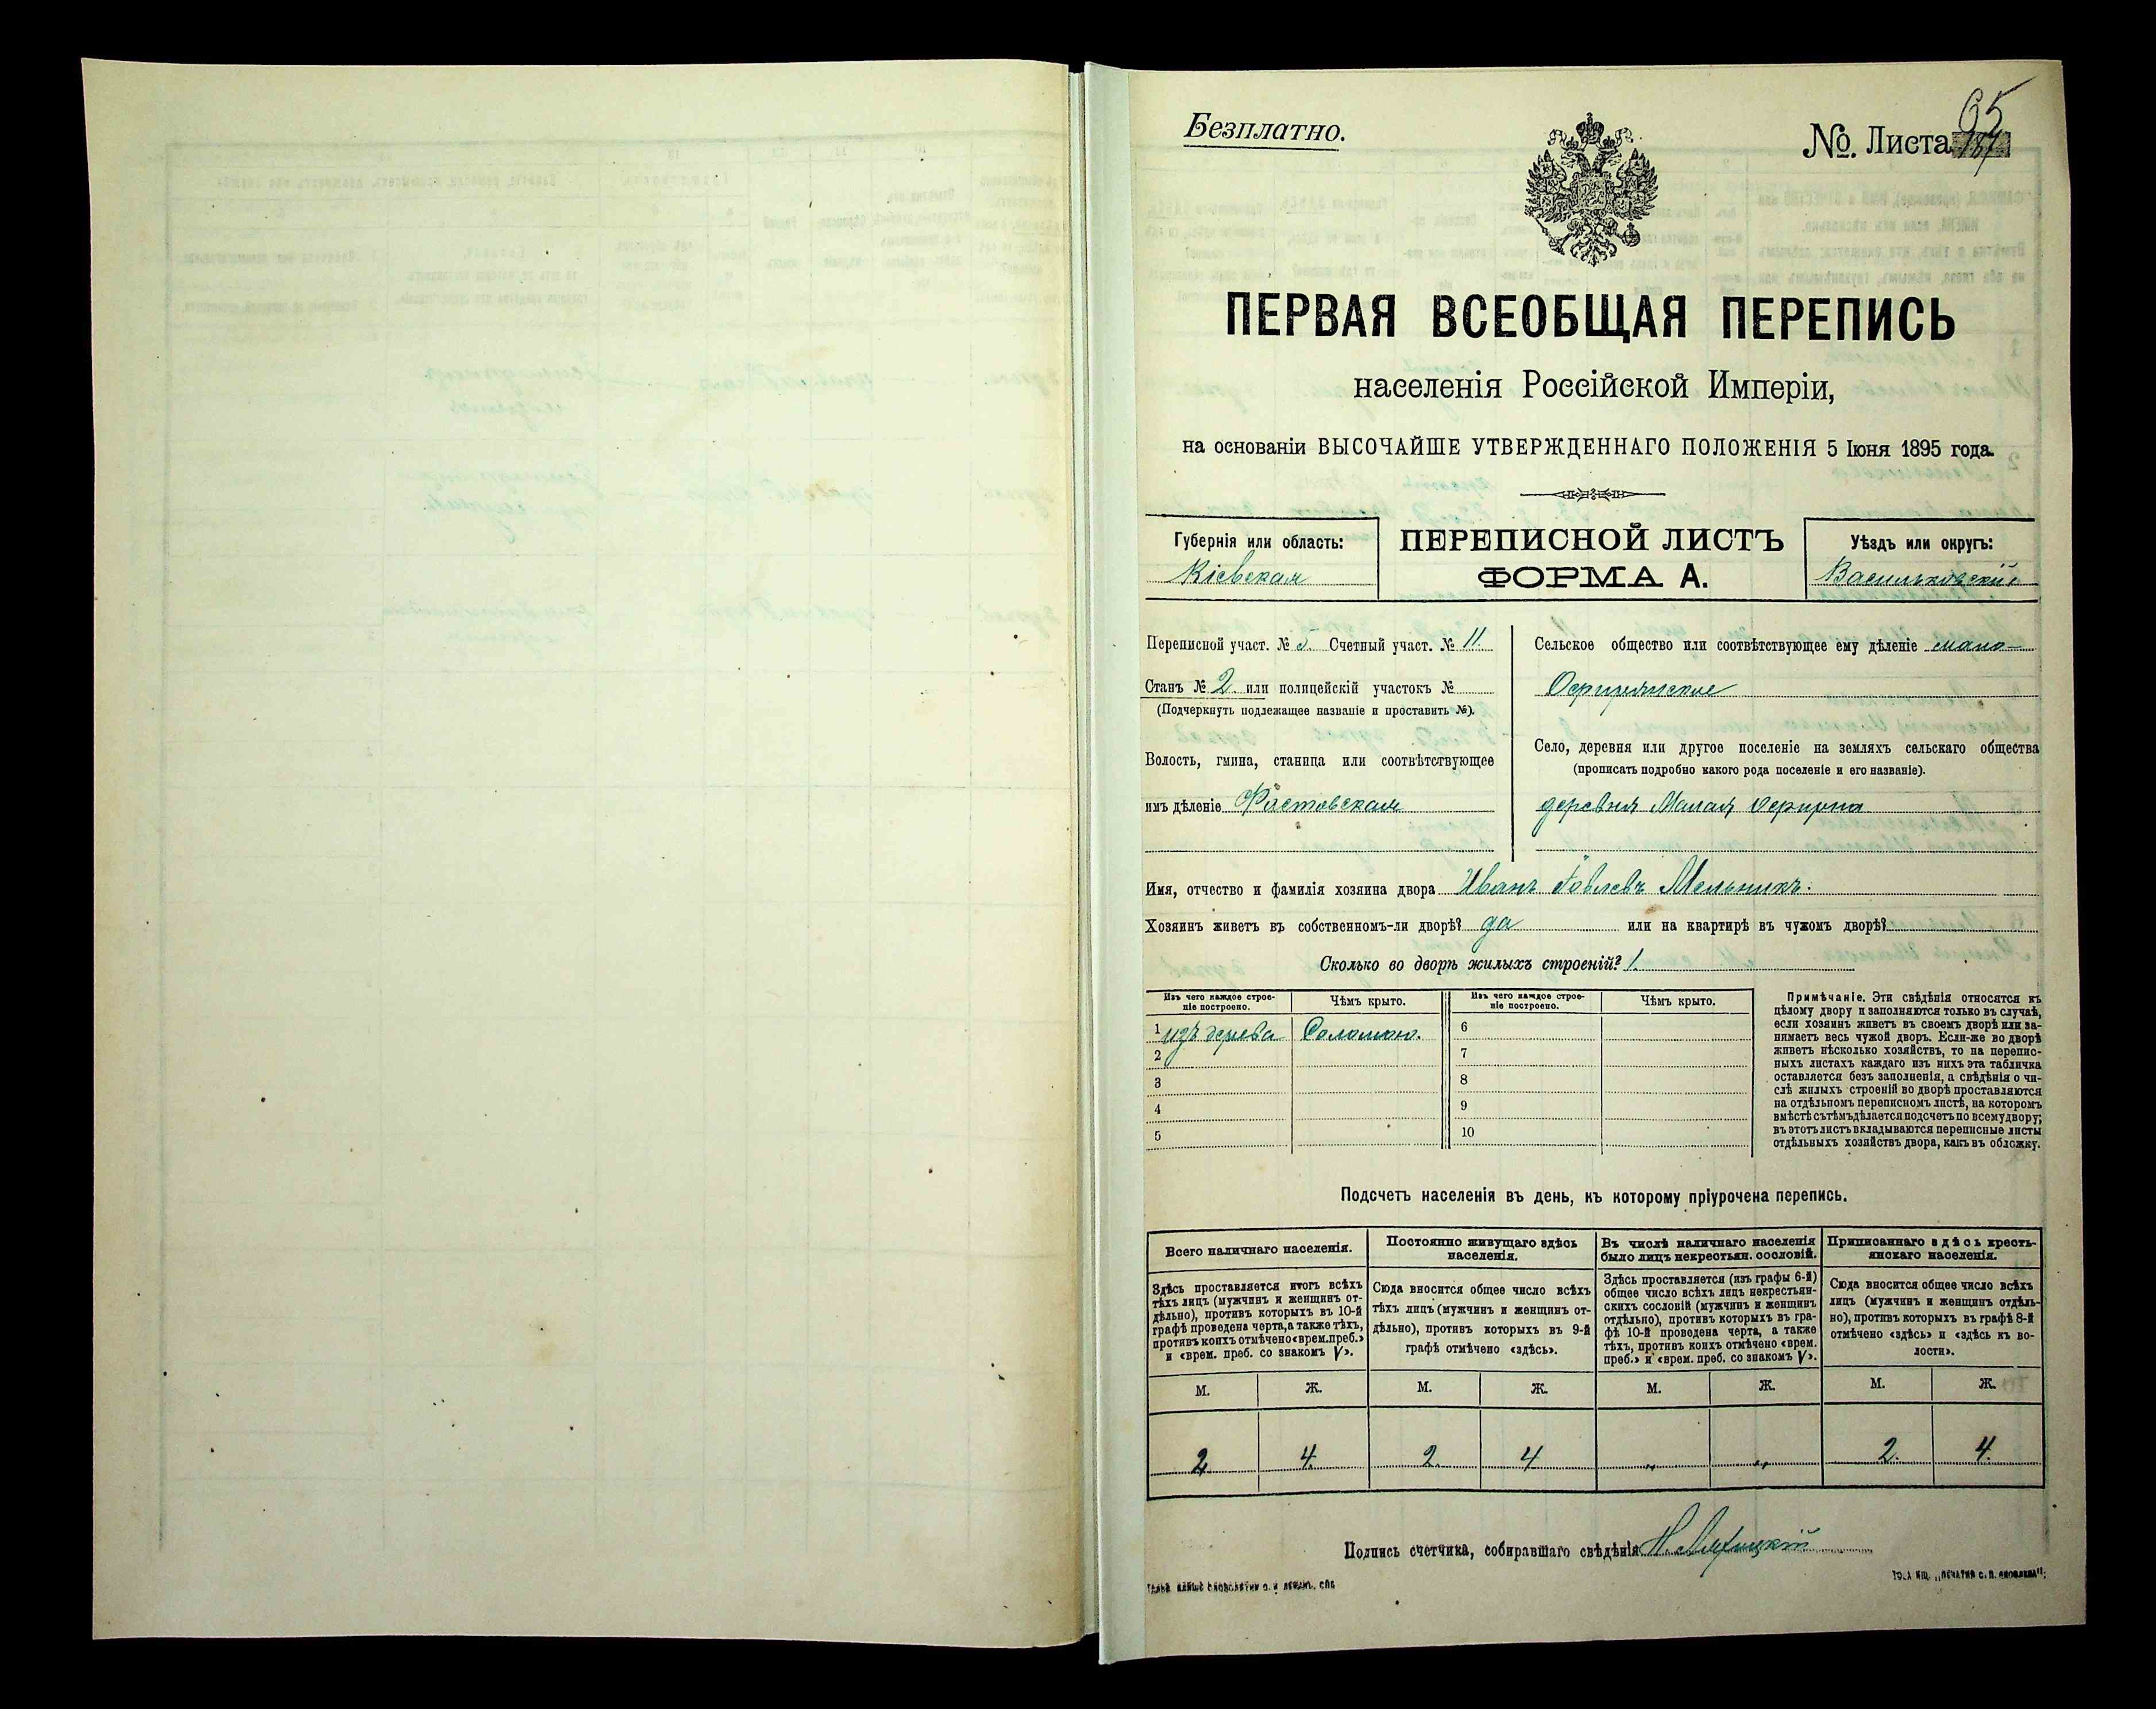 Безплатно.
№. Листа 65
ПЕРВАЯ ВСЕОБЩАЯ ПЕРЕПИСЬ
населенія Россійской Имперіи,
на основаніи ВЫСОЧАЙШЕ УТВЕРЖДЕННАГО ПОЛОЖЕНІЯ 5 Іюня 1895 года.
Губернія или область:
Кіевская
ПЕРЕПИСНОЙ ЛИСТЪ
ФОРМА А.
Уѣздъ или округъ:
Васильковскій
Переписной участ. № 5. Счетный участ. № 11.
Станъ № 2. или полицейскій участокъ №
(Подчеркнуть подлежащее названіе и проставить №).
Волость, гмина, станица или соотвѣтствующее
имъ дѣленіе Фастовская
Сельское общество или соотвѣтствующее ему дѣленіе мало-
Село, деревня или другое поселеніе на земляхъ сельскаго общества
(прописать подробно какого рода поселеніе и его названіе).
деревня Малая
Имя, отчество и фамилія хозяина двора Иванъ Мельникъ.
Хозяинъ живетъ въ собственномъ-ли дворѣ? да или на квартирѣ въ чужомъ дворѣ?
Сколько во дворѣ жилыхъ строеній? 1.
Изъ чего каждое строе-
ніе построено.
Чѣмъ крыто.
Изъ чего каждое строе-
ніе построено.
Чѣмъ крыто.
1 изъ дерева Соломою. 6
2 7
3 8
4 9
5 10
Примѣчаніе. Эти свѣдѣнія относятся къ
цѣлому двору и заполняются только въ случаѣ,
если хозяинъ живетъ въ своемъ дворѣ или за-
нимаетъ весь чужой дворъ. Если-же во дворѣ
живетъ нѣсколько хозяйствъ, то на перепис-
ныхъ листахъ каждаго изъ нихъ эта табличка
оставляется безъ заполненія, а свѣдѣнія о чи-
слѣ жилыхъ строеній во дворѣ проставляются
на отдѣльномъ переписномъ листѣ, на которомъ
вмѣстѣ съ тѣмъ дѣлается подсчетъ по всему двору;
въ этотъ листъ вкладываются переписные листы
отдѣльныхъ хозяйствъ двора, какъ въ обложку.
Подсчетъ населенія въ день, къ которому пріурочена перепись.
Всего наличнаго населенія.
Здѣсь проставляется итогъ всѣхъ
тѣхъ лицъ (мужчинъ и женщинъ от-
дѣльно), противъ которыхъ въ 10-й
графѣ проведена черта, а также тѣхъ,
противъ коихъ отмѣчено «врем. преб.»
и «врем. преб. со знакомъ V».
Постоянно живущаго здѣсь
населенія.
Сюда вносится общее число всѣхъ
тѣхъ лицъ (мужчинъ и женщинъ от-
дѣльно), противъ которыхъ въ 9-й
графѣ отмѣчено «здѣсь».
Въ числѣ наличнаго населенія
было лицъ некрестьян. сословій.
Здѣсь проставляется (изъ графы 6-й)
общее число всѣхъ лицъ некрестьян-
скихъ сословій (мужчинъ и женщинъ
отдѣльно), противъ которыхъ въ гра-
фѣ 10-й проведена черта, а также
тѣхъ, противъ коихъ отмѣчено «врем.
преб.» и «врем. преб. со знакомъ V».
Приписаннаго здѣсь кресть-
янскаго населенія.
Сюда вносится общее число всѣхъ
лицъ (мужчинъ и женщинъ отдѣль-
но), противъ которыхъ въ графѣ 8-й
отмѣчено «здѣсь» и «здѣсь къ во-
лости».
М. Ж. М. Ж. М. Ж. М. Ж.
2 4. 2. 4 „ „ 2. 4.
Подпись счетчика, собиравшаго свѣдѣнія